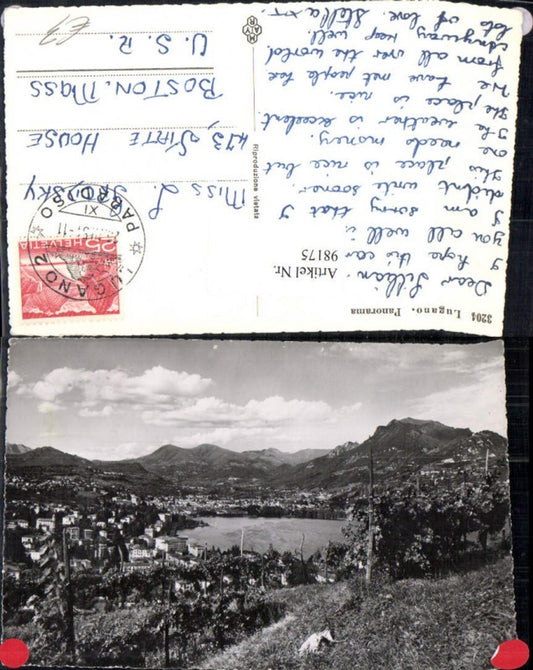 3204 Lugano. Panorama
Artikel Nr.
98175
Dear Lillian.
I hope this can
you all well:
I am sorry that I
didnt write sooner.
This place is nice but
one needs money.
The weather is excelent
The place is nice.
We have met people her
from all over the world
anyway keep well.
lots of love. Stella xx.
Riproduzione vietata
Miss L.
473, State House
Boston. Mass
U. S. A.
25 HELVETIA
LUGANO 2
PARADISO
XI